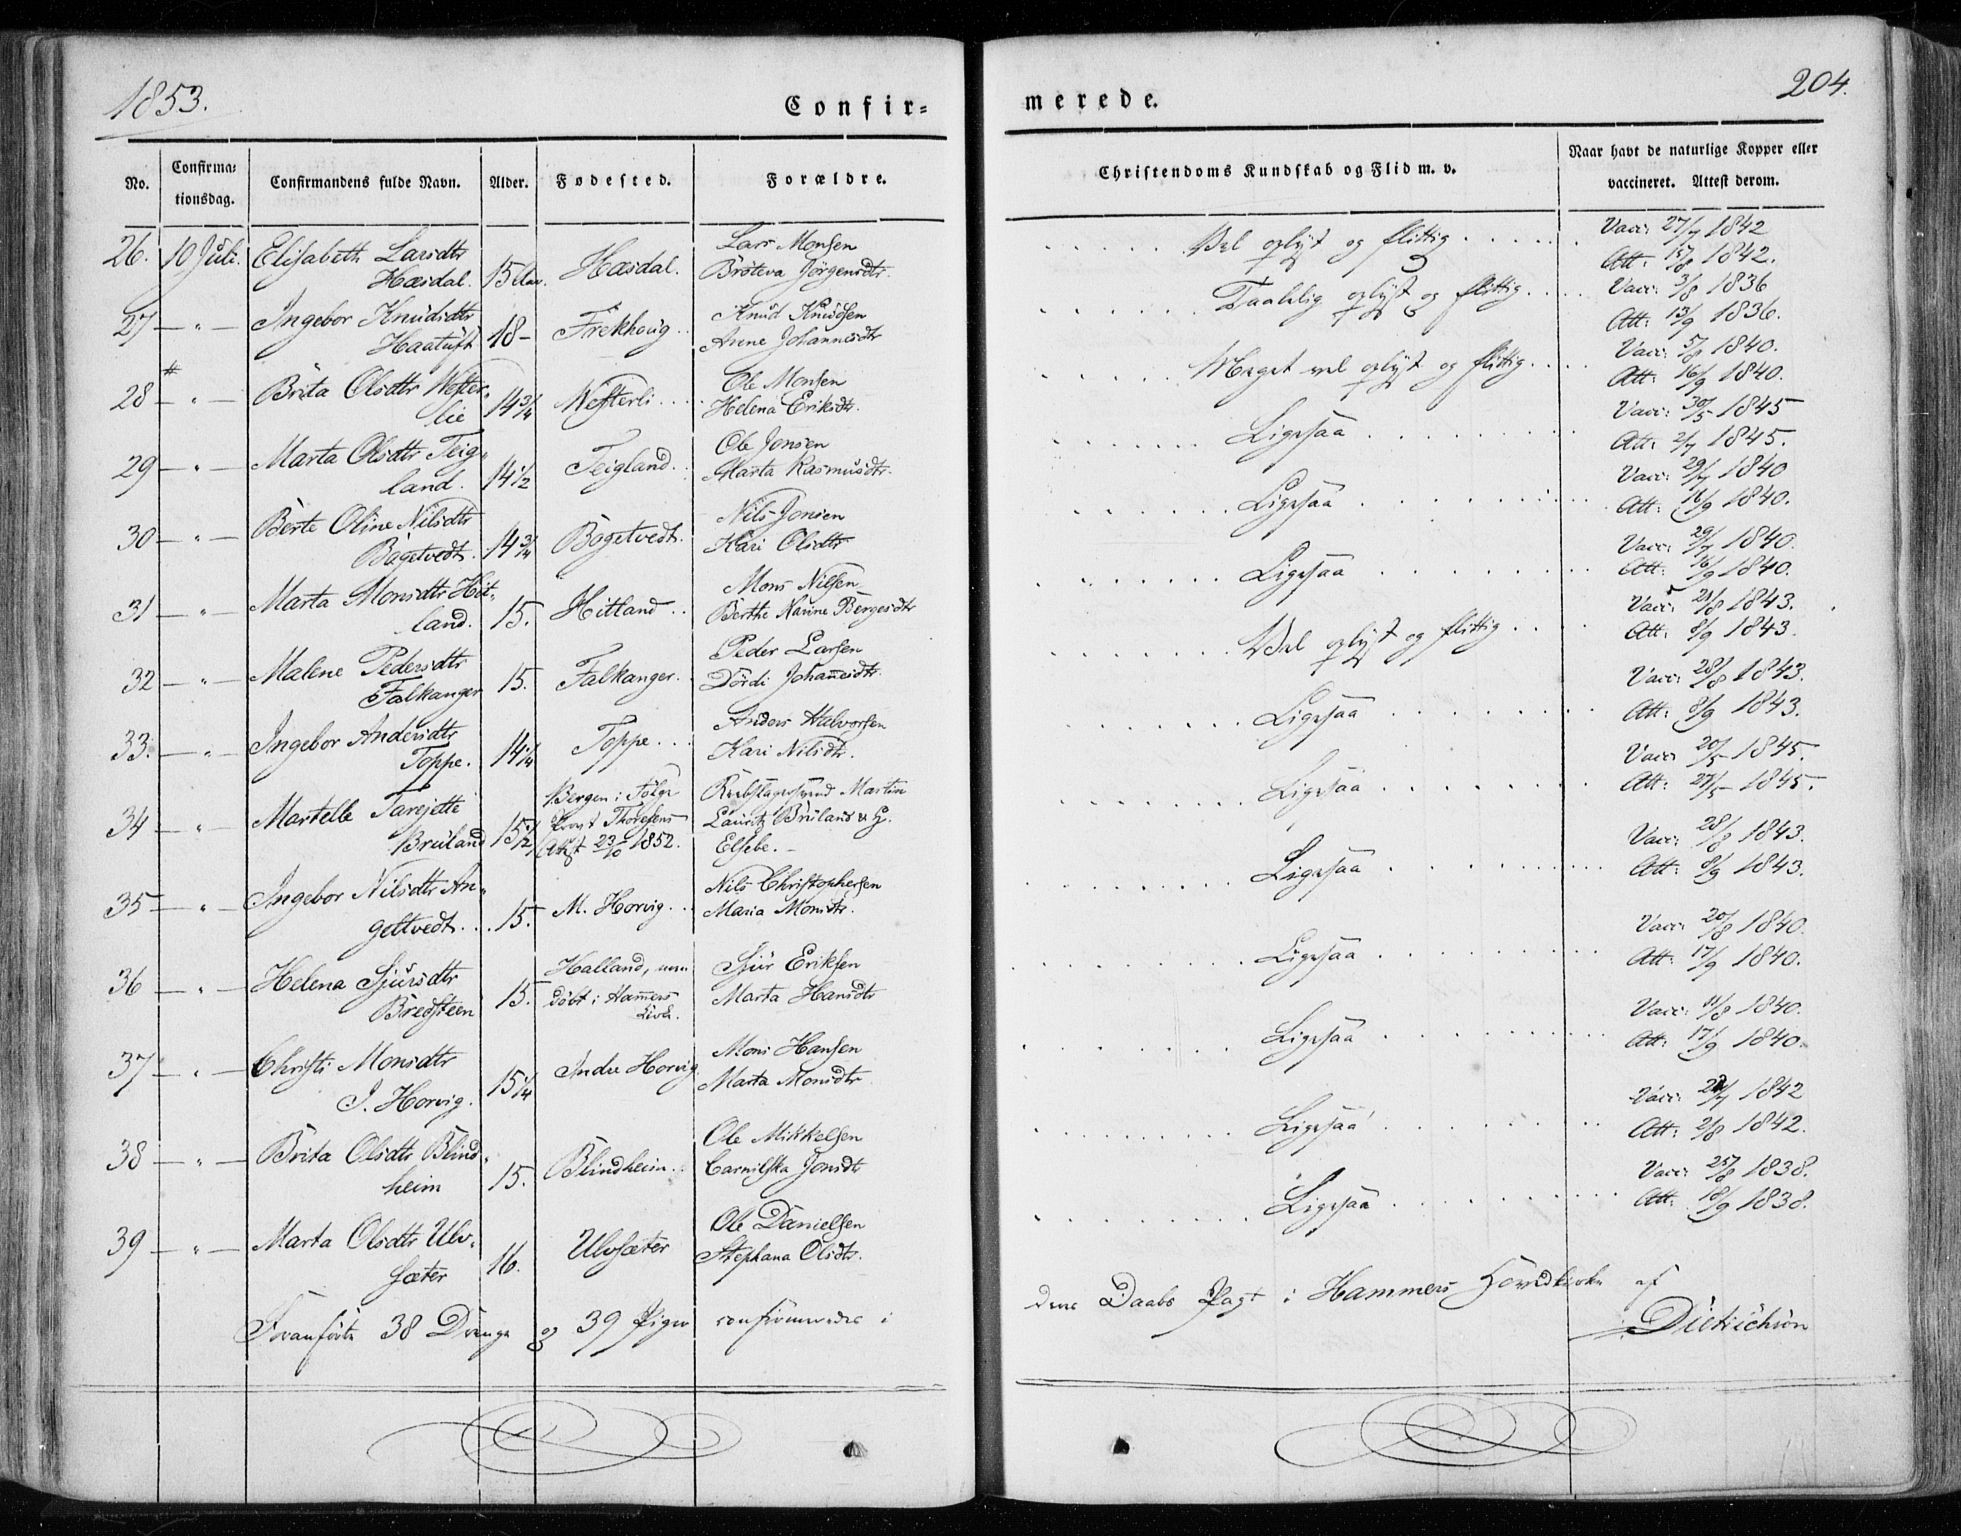 1853.
Confir=
No.
Confirma=
tionsdag.
Confirmandens fulde Navn.
Alder.
Fødested.
Forældre.
26. 10 Juli. Elisabeth Larsdtr Lars Monsen
Hæsdal. 15 Aar. Hæsdal. Bróteva Jörgensdtr.
27 — " — Ingebor Knudsdtr Knud Knudsen
Haatuft 18 - Frekhoug.. Anne Johannesdtr
28 — " — Brita Olsdtr Wester= Ole Monsen
lie 14 3/4 Westerli... Helena Eriksdtr.
29 — " — Marta Olsdtr Teig= Ole Jonsen
land. 14 1/2 Teigland.. Marta Rasmusdtr.
30 — " — Berte Oline Nilsdtr Nils Jonsen
Bögetvedt. 14 3/4 Bögetvedt. Kari Olsdtr
31 — " — Marta Monsdtr Hit= Mons Nilsen
land. 15. Hitland.. Berthe Karine Börgesdtr
32 — " — Malene Pedersdtr Peder Larsen
Falkanger 15. Falkanger. Dördi Johannesdtr.
33. — " — Ingebor Andersdtr Anders Halvorsen
Toppe. 14 1/4 Toppe... Kari Nilsdtr.
34 — " — Martelle Tarejette Bergen i Følge Reebslagersvend Martin
Bruland 15 1/2 Provst Thoresens Lauritz Bruland & H.
Attest 23/10 1852. Elsebe. -
35 — " — Ingebor Nilsdtr An= Nils Christophersen
geltvedt... 15. M. Horvig... Maria Monsdtr.
36 — " — Helena Sjursdtr Halland, men Sjur Eriksen
Bredsteen 15. døbt i Hammers Marta Hansdtr
Kirke.
37 — " — Christi Monsdtr Mons Hansen
I. Horvig. 15 1/4 Indre Horvig Marta Monsdtr
38 — " — Brita Olsdtr Blind= Ole Mikkelsen
heim 15. Blindheim.. Carnilska Jonsdtr
39 — " — Marta Olsdtr Ulv= Ole Danielsen
sæter 16. Ulvsæter Stephana Olsdtr.
Foranførte 38 Drenge og 39 Piger confirmeredes i
204.
merede.
Christendoms Kundskab og Flid m. v.
Naar havt de naturlige Kopper eller
vaccineret. Attest derom.
Vel oplyst og flittig..... Vacc: 27/7 1842
Att: 15/8 1842.
Taalelig oplyst og flittig.... Vacc: 3/8 1836
Att: 13/9 1836.
Meget vel oplyst og flittig.... Vacc: 5/8 1840.
Att: 16/9 1840.
Ligesaa Vacc: 30/5 1845
Att: 2/7 1845.
Ligesaa Vacc: 29/7 1840
Att: 16/9 1840.
Ligesaa Vacc: 29/7 1840.
Att: 16/9 1840.
Vel oplyst og flittig.... Vacc: 21/8 1843.
Att: 8/9 1843.
Ligesaa Vacc: 28/8 1843.
Att: 8/9 1843.
Ligesaa Vacc: 20/5 1845.
Att: 27/5 1845.
Ligesaa Vacc: 28/8 1843.
Att: 8/9 1843.
Ligesaa Vacc: 20/8 1840.
Att: 17/9 1840.
Ligesaa Vacc: 11/8 1840.
Att: 17/9 1840.
Ligesaa Vacc: /7 1842
Att: 2/8 1842.
Ligesaa Vacc: 25/8 1838.
Att: 18/9 1838.
Daabs Pagt i Hammers Hovedkirke af
Dietrichson